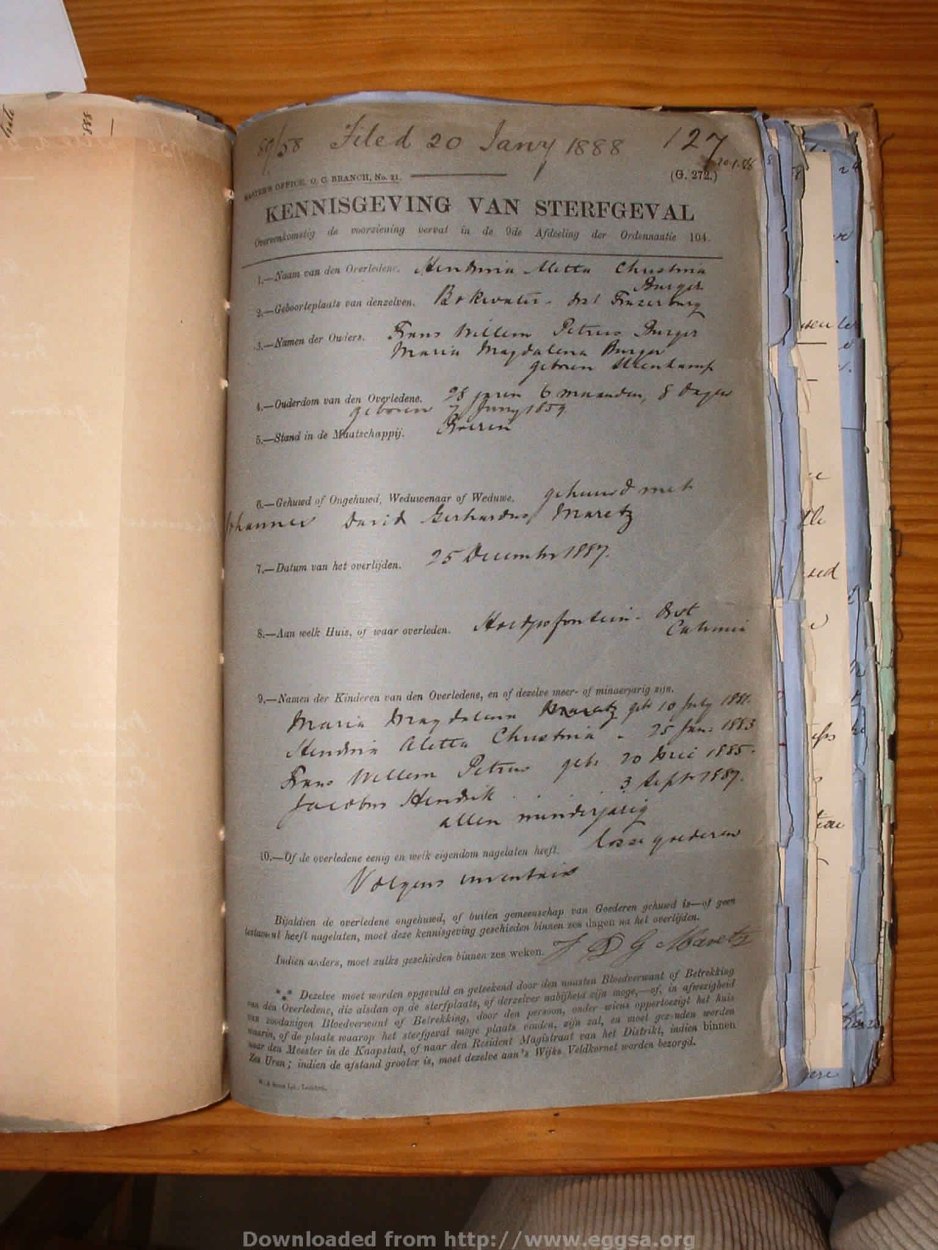 Filed 20 Jany 1888 127
MASTER'S OFFICE, O. C. BRANCH, No. 21.
(G. 272.)
KENNISGEVING VAN STERFGEVAL
Overeenkomstig de voorziening vervat in de 9de Afdeeling der Ordonnantie 104.
1.—Naam van den Overledene. Hendrina Aletta Christina
Burger
2.—Geboorteplaats van denzelven. Bokwater - Dist Frazerburg
3.—Namen der Ouders. Frans Willem Petrus Burger
Maria Magdalena Burger
geboren Steenkamp
4.—Ouderdom van den Overledene. 28 jaren 6 maanden, 8 dagen
geboren 7 Juny 1859
5.—Stand in de Maatschappij. Boerin
6.—Gehuwd of Ongehuwd, Weduwenaar of Weduwe. gehuwd met
Johannes David Gerhardus Maretz
7.—Datum van het overlijden. 25 December 1887.
8.—Aan welk Huis, of waar overleden. Dist
Calvinia
9.—Namen der Kinderen van den Overledene, en of dezelve meer- of minderjarig zijn.
Maria Magdalena Maretz geb 10 July 1881.
Hendrina Aletta Christina - 25 Jan. 1883
Frans Willem Petrus geb. 20 1885.
Jacobus Hendrik 3 Sept 1887.
allen minderjarig
10.—Of de overledene eenig en welk eigendom nagelaten heeft. losse goederen
Volgens inventaris
Bijaldien de overledene ongehuwd, of buiten gemeenschap van Goederen gehuwd is—of geen
testament heeft nagelaten, moet deze kennisgeving geschieden binnen zes dagen na het overlijden.
Indien anders, moet zulks geschieden binnen zes weken. J D G Maretz
*** Dezelve moet worden opgevuld en geteekend door den naasten Bloedverwant of Betrekking
van den Overledene, die alsdan op de sterfplaats, of derzelver nabijheid zijn moge,—of, in afwezigheid
van zoodanigen Bloedverwant of Betrekking, door den persoon, onder wiens oppertoezigt het huis
waarin, of de plaats waarop het sterfgeval moge plaats vinden, zijn zal, en moet gezonden worden
naar den Meester in de Kaapstad, of naar den Resident Magistraat van het Distrikt, indien binnen
Zes Uren; indien de afstand grooter is, moet dezelve aan 's Wijks Veldkornet worden bezorgd.
Downloaded from http://www.eggsa.org